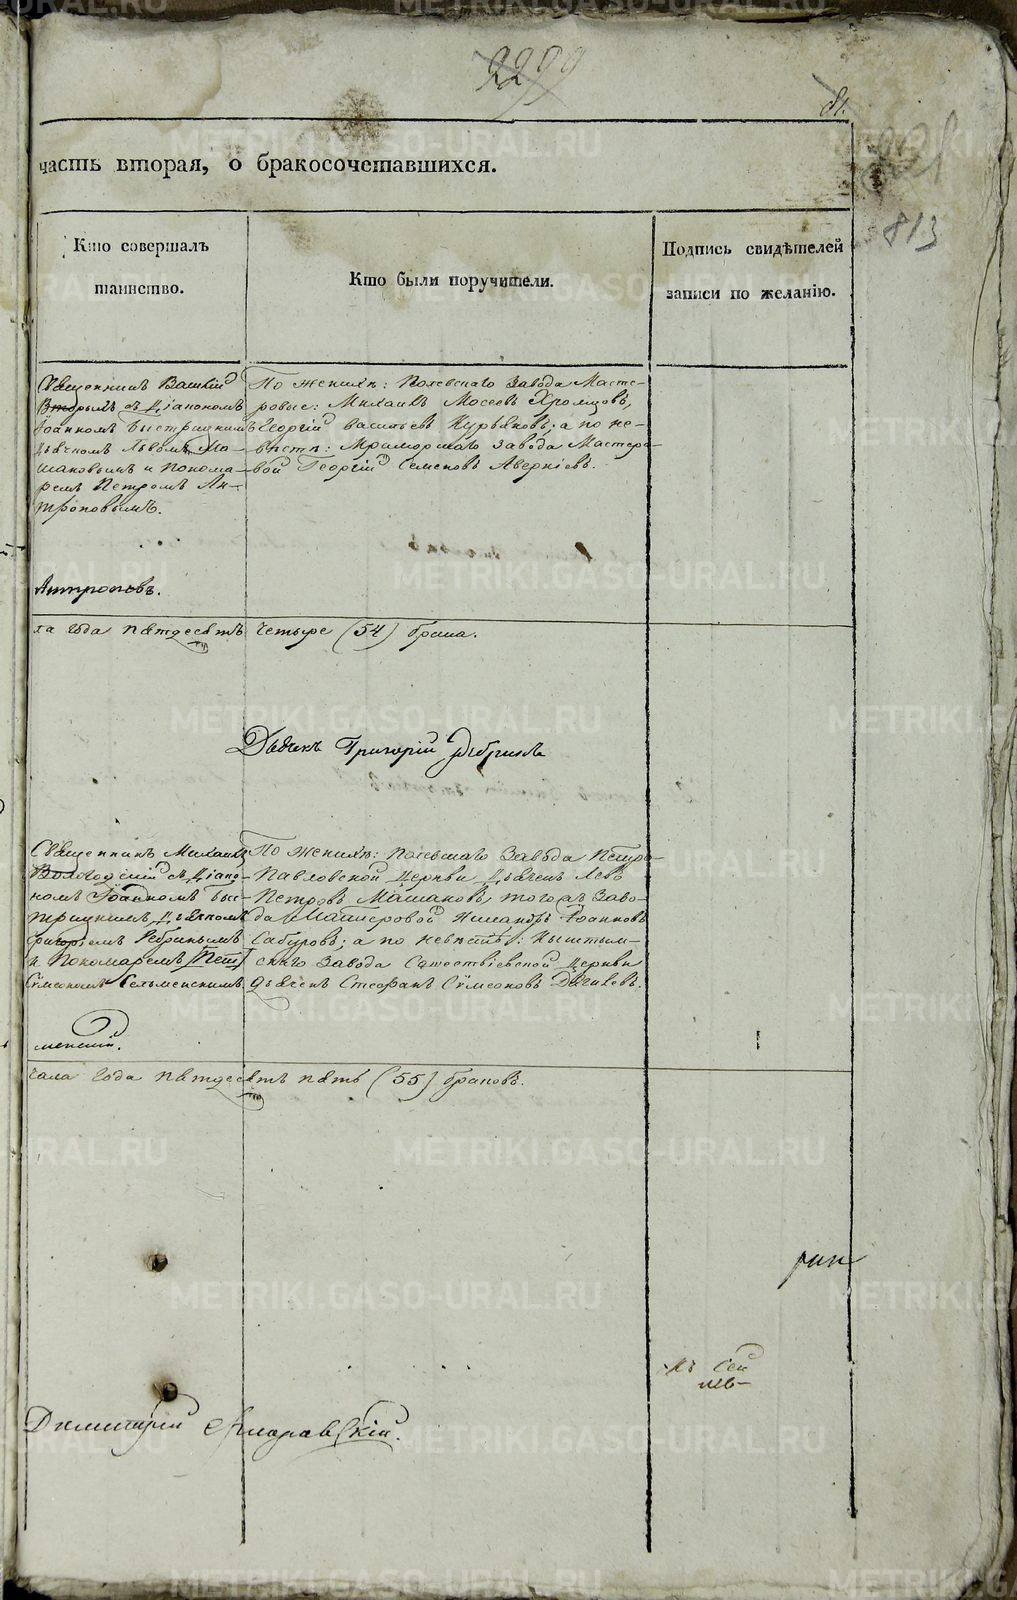 81.
813
часть вторая, о бракосочетавшихся.
Кто совершалъ
таинство.
Кто были поручители.
Подпись свидѣтелей
записи по желанію.
Священникъ
съ Діакономъ
Іоанномъ Быстрицкимъ
Дьячкомъ Львомъ Ма-
шановымъ и Понома-
ремъ Петромъ Ан-
троповымъ.
По женихѣ: Полевскаго Завода Масте-
ровые: Михаилъ Мосеевъ Хромцовъ,
Георгій Васильевъ Курьяковъ; а по не-
вѣстѣ: Мраморскаго завода Мастеро-
вой Георгій Семеновъ Аверкіевъ.
Антроповъ.
ла года пятдесятъ четыре (54) брака.
Дьячекъ Григорій Ребринъ
Священникъ Михаилъ
Вологодскій съ Діако-
номъ Іоанномъ Быс-
трицкимъ, Дьячкомъ
Григоріемъ Ребринымъ
и Пономаремъ (Пет)
Сѵмеономъ Сельменскимъ
По женихѣ: Полевскаго Завода Петро-
Павловской Церкви Дьячекъ Левъ
Петровъ Машановъ, того жъ Заво-
да Мастеровой Никаноръ Іоанновъ
Сабуровъ; а по невѣстѣ: Кыштым-
скаго Завода Сошествіевской Церкви
дьячекъ Стефанъ Сѵмеоновъ
менскій.
чала года пятдесятъ пять (55) браковъ.
къ сей
Димитрій
METRIKI.GASO-URAL.RU